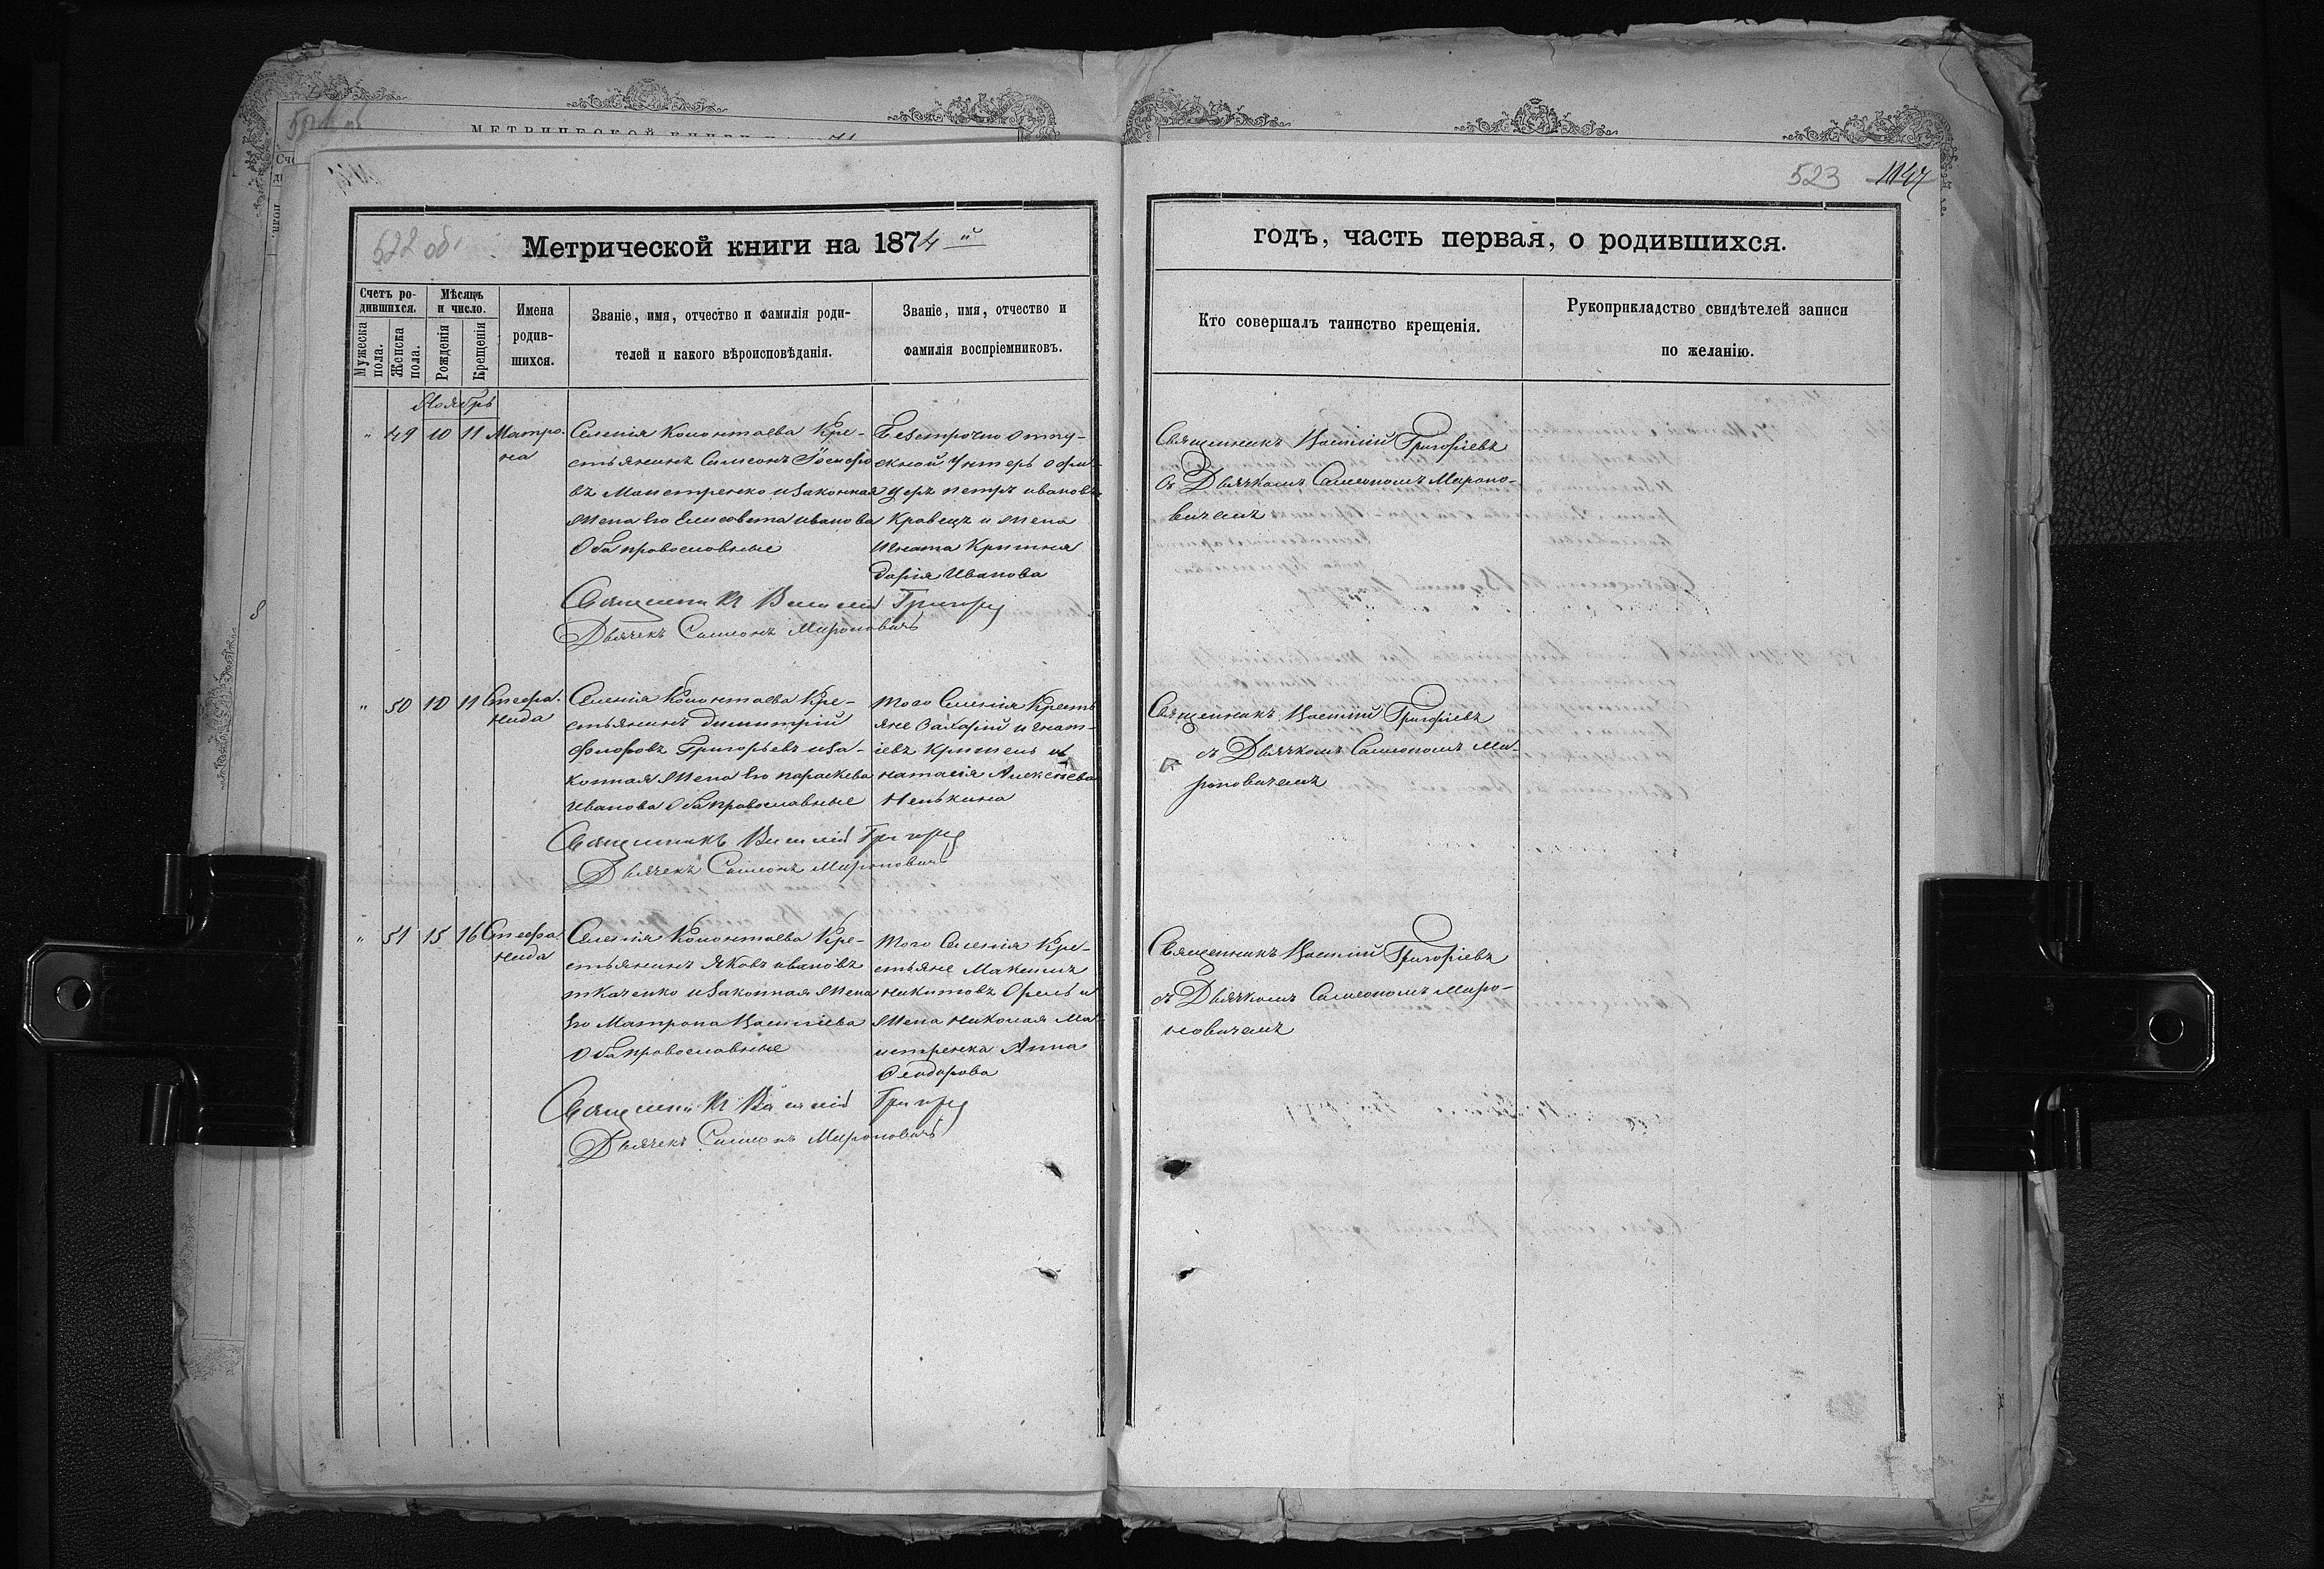 МЕТРИЧЕСКОЙ КНИГИ
523 1147
522 об.
Метрической книги на 1874 й
годъ, часть первая, о родившихся.
Счетъ ро-
дившихся.
Мужеска
пола.
Женска
пола.
Мѣсяцъ
и число.
Рожденія
Крещенія
Имена
родив-
шихся.
Званіе, имя, отчество и фамилія роди-
телей и какого вѣроисповѣданія.
Званіе, имя, отчество и
фамилія воспріемниковъ.
Кто совершалъ таинство крещенія.
Рукоприкладство свидѣтелей записи
по желанію.
Ноябрь
" 49 10 11 Матро-
на
Селенія Колонтаева Кре-
стьянинъ Симеонъ Іосифо
въ Манстренко и Законная
Жена Его Елисавета иванова
Оба православные
Безсрочно отпу-
скной унтеръ офи-
церъ петръ ивановъ
Кравецъ и жена
Игната Критня
Дарія Иванова
Священникъ Василій Григорьевъ
Дьячекъ Симеонъ Мироновичъ
Священникъ Василій Григоріевъ
съ Дьячкомъ Симеономъ Мироно-
вичемъ
" 50 10 11 Стефа-
нида
Селенія Колонтаева Кре-
стьянинъ димитрій
Григорьевъ и за-
конная Жена Его параскева
Иванова Оба православные
того Селенія Кресть
яне Захарій игнат-
іевъ и
наталія Алексеева
Священникъ Василій Григорьевъ
Дьячекъ Симеонъ Мироновичъ
Священникъ Василій Григоріевъ
съ Дьячкомъ Симеономъ Ми-
роновичемъ
" 51 15 16 Стефа
нида
Селенія Колонтаева Кре-
стьянинъ Яковъ ивановъ
ткаченко и Законная Жена
Его Матрона Василіева
Оба православные
того Селенія Кре-
стьяне Максимъ
никитовъ Орелъ и
Жена николая Ма-
истренка Анна
Ѳеодорова
Священникъ Василій Григорьевъ
Дьячекъ Симеонъ Мироновичъ
Священникъ Василій Григоріевъ
съ Дьячкомъ Симеономъ Миро-
новичемъ